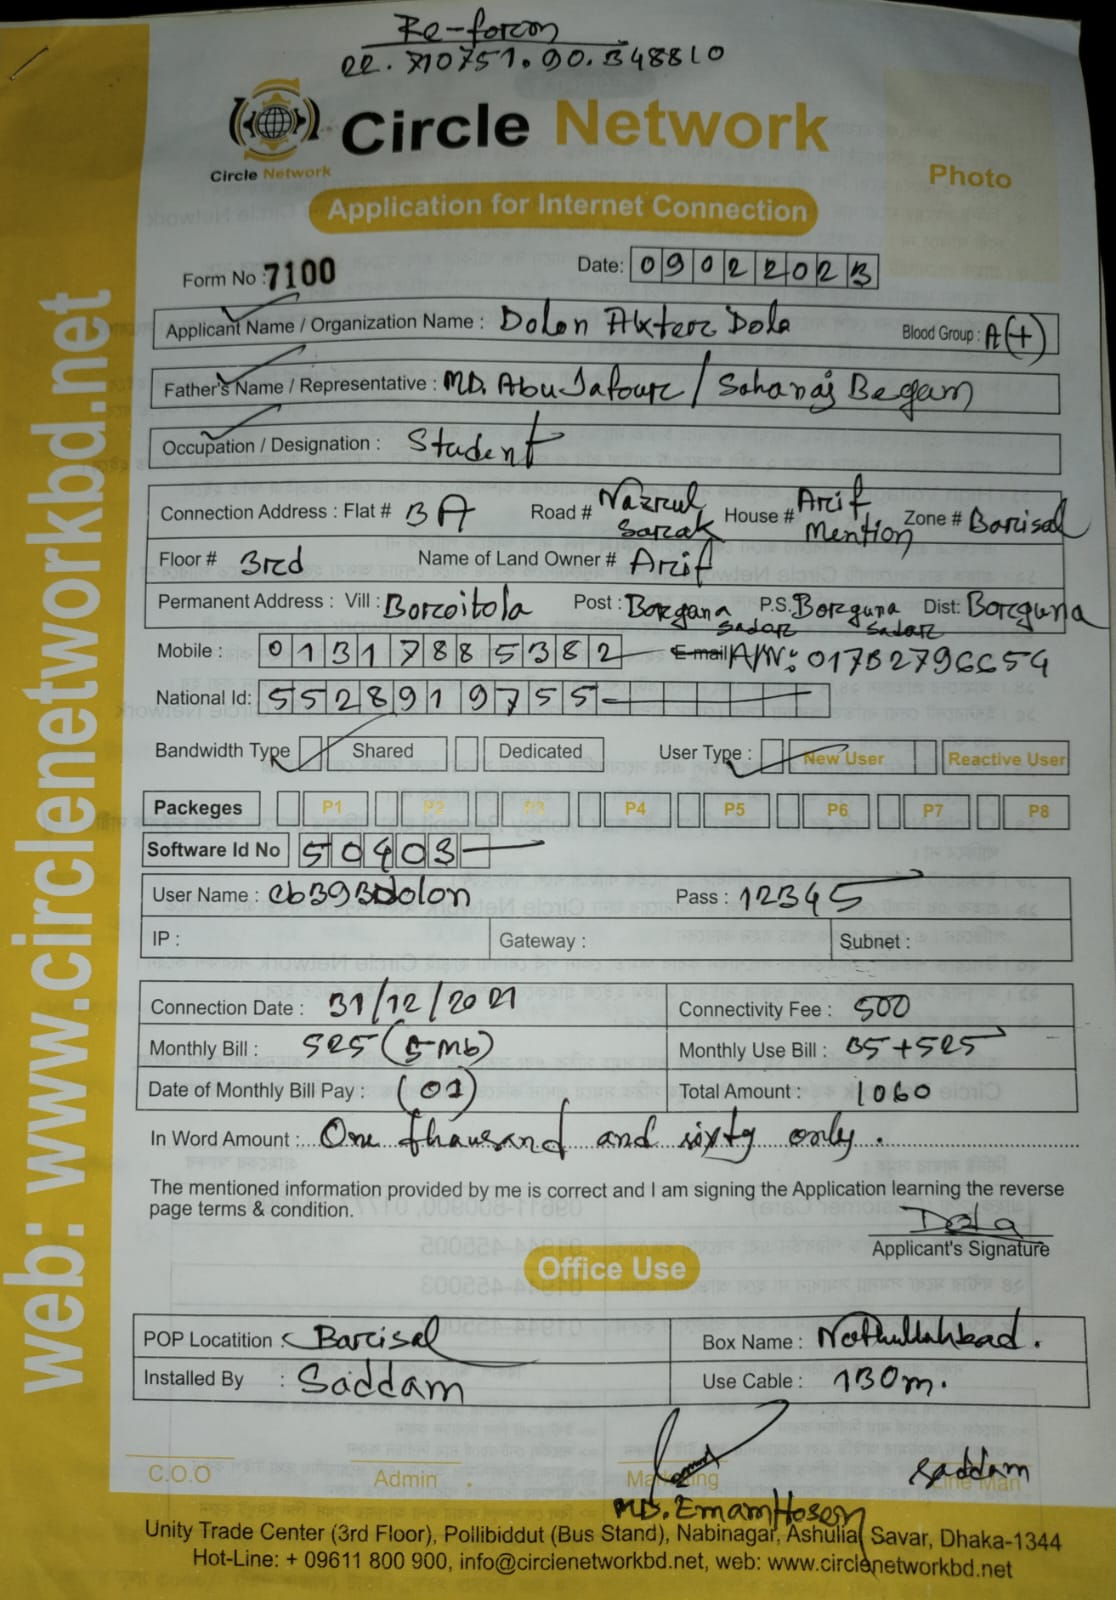 Re-forom
22.710751.90.348810
Circle Network
Circle Network
Photo
Application for Internet Connection
Form No : 7100
Date: 09022023
Applicant Name / Organization Name : Dolon Akter Dola Blood Group : A(+)
Father's Name / Representative : MD. Abu Jafour / Sahanaj Begam
Occupation / Designation : Student
Connection Address : Flat # 3A Road # Nazrul Sarak House # Arif Mention Zone # Barisal
Floor # 3rd Name of Land Owner # Arif
Permanent Address : Vill : Boroitola Post : Borgana Sadar P.S. Borguna Sadar Dist: Borguna
Mobile : 01317885382 E-mail A/N: 01782796654
National Id: 5528919755
Bandwidth Type Shared Dedicated User Type : New User Reactive User
Packeges P1 P2 P3 P4 P5 P6 P7 P8
Software Id No 50903
User Name : cb393dolon Pass : 12345
IP : Gateway : Subnet :
Connection Date : 31/12/2021 Connectivity Fee : 500
Monthly Bill : 525 (5-mb) Monthly Use Bill : 35+525
Date of Monthly Bill Pay : (01) Total Amount : 1060
In Word Amount : One thausand and sixty only.
The mentioned information provided by me is correct and I am signing the Application learning the reverse
page terms & condition.
Dola
Applicant's Signature
Office Use
POP Locatition : Barisal Box Name : Nothullahbad.
Installed By : Saddam Use Cable : 130m.
saddam
C.O.O Admin Marketing Line Man
MD. Emam Hosen
Unity Trade Center (3rd Floor), Pollibiddut (Bus Stand), Nabinagar, Ashulia, Savar, Dhaka-1344
Hot-Line: + 09611 800 900, info@circlenetworkbd.net, web: www.circlenetworkbd.net
web: www.circlenetworkbd.net